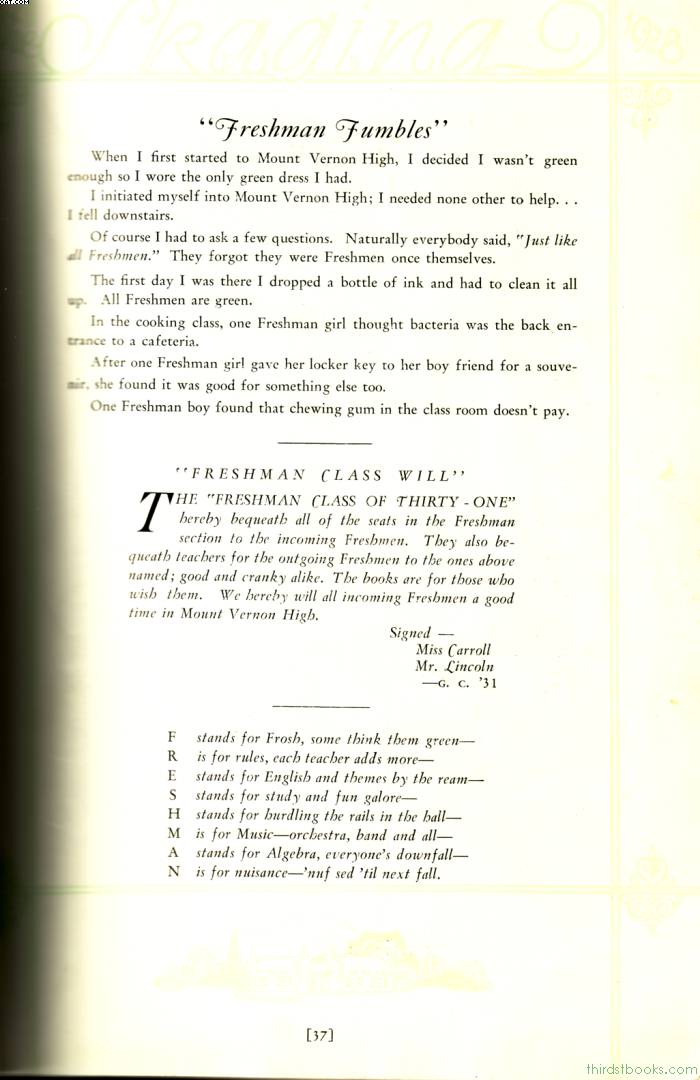 XAT.COM
Skagina 1928
"Freshman Fumbles"
When I first started to Mount Vernon High, I decided I wasn't green
enough so I wore the only green dress I had.
I initiated myself into Mount Vernon High; I needed none other to help. . .
I fell downstairs.
Of course I had to ask a few questions. Naturally everybody said, "Just like
all Freshmen." They forgot they were Freshmen once themselves.
The first day I was there I dropped a bottle of ink and had to clean it all
up. All Freshmen are green.
In the cooking class, one Freshman girl thought bacteria was the back en-
trance to a cafeteria.
After one Freshman girl gave her locker key to her boy friend for a souve-
nir, she found it was good for something else too.
One Freshman boy found that chewing gum in the class room doesn't pay.
"FRESHMAN CLASS WILL"
THE "FRESHMAN CLASS OF THIRTY-ONE"
hereby bequeath all of the seats in the Freshman
section to the incoming Freshmen. They also be-
queath teachers for the outgoing Freshmen to the ones above
named; good and cranky alike. The books are for those who
wish them. We hereby will all incoming Freshmen a good
time in Mount Vernon High.
Signed —
Miss Carroll
Mr. Lincoln
—G. C. '31
F stands for Frosh, some think them green—
R is for rules, each teacher adds more—
E stands for English and themes by the ream—
S stands for study and fun galore—
H stands for hurdling the rails in the hall—
M is for Music—orchestra, band and all—
A stands for Algebra, everyone's downfall—
N is for nuisance—'nuf sed 'til next fall.
[37]
thirdstbooks.com